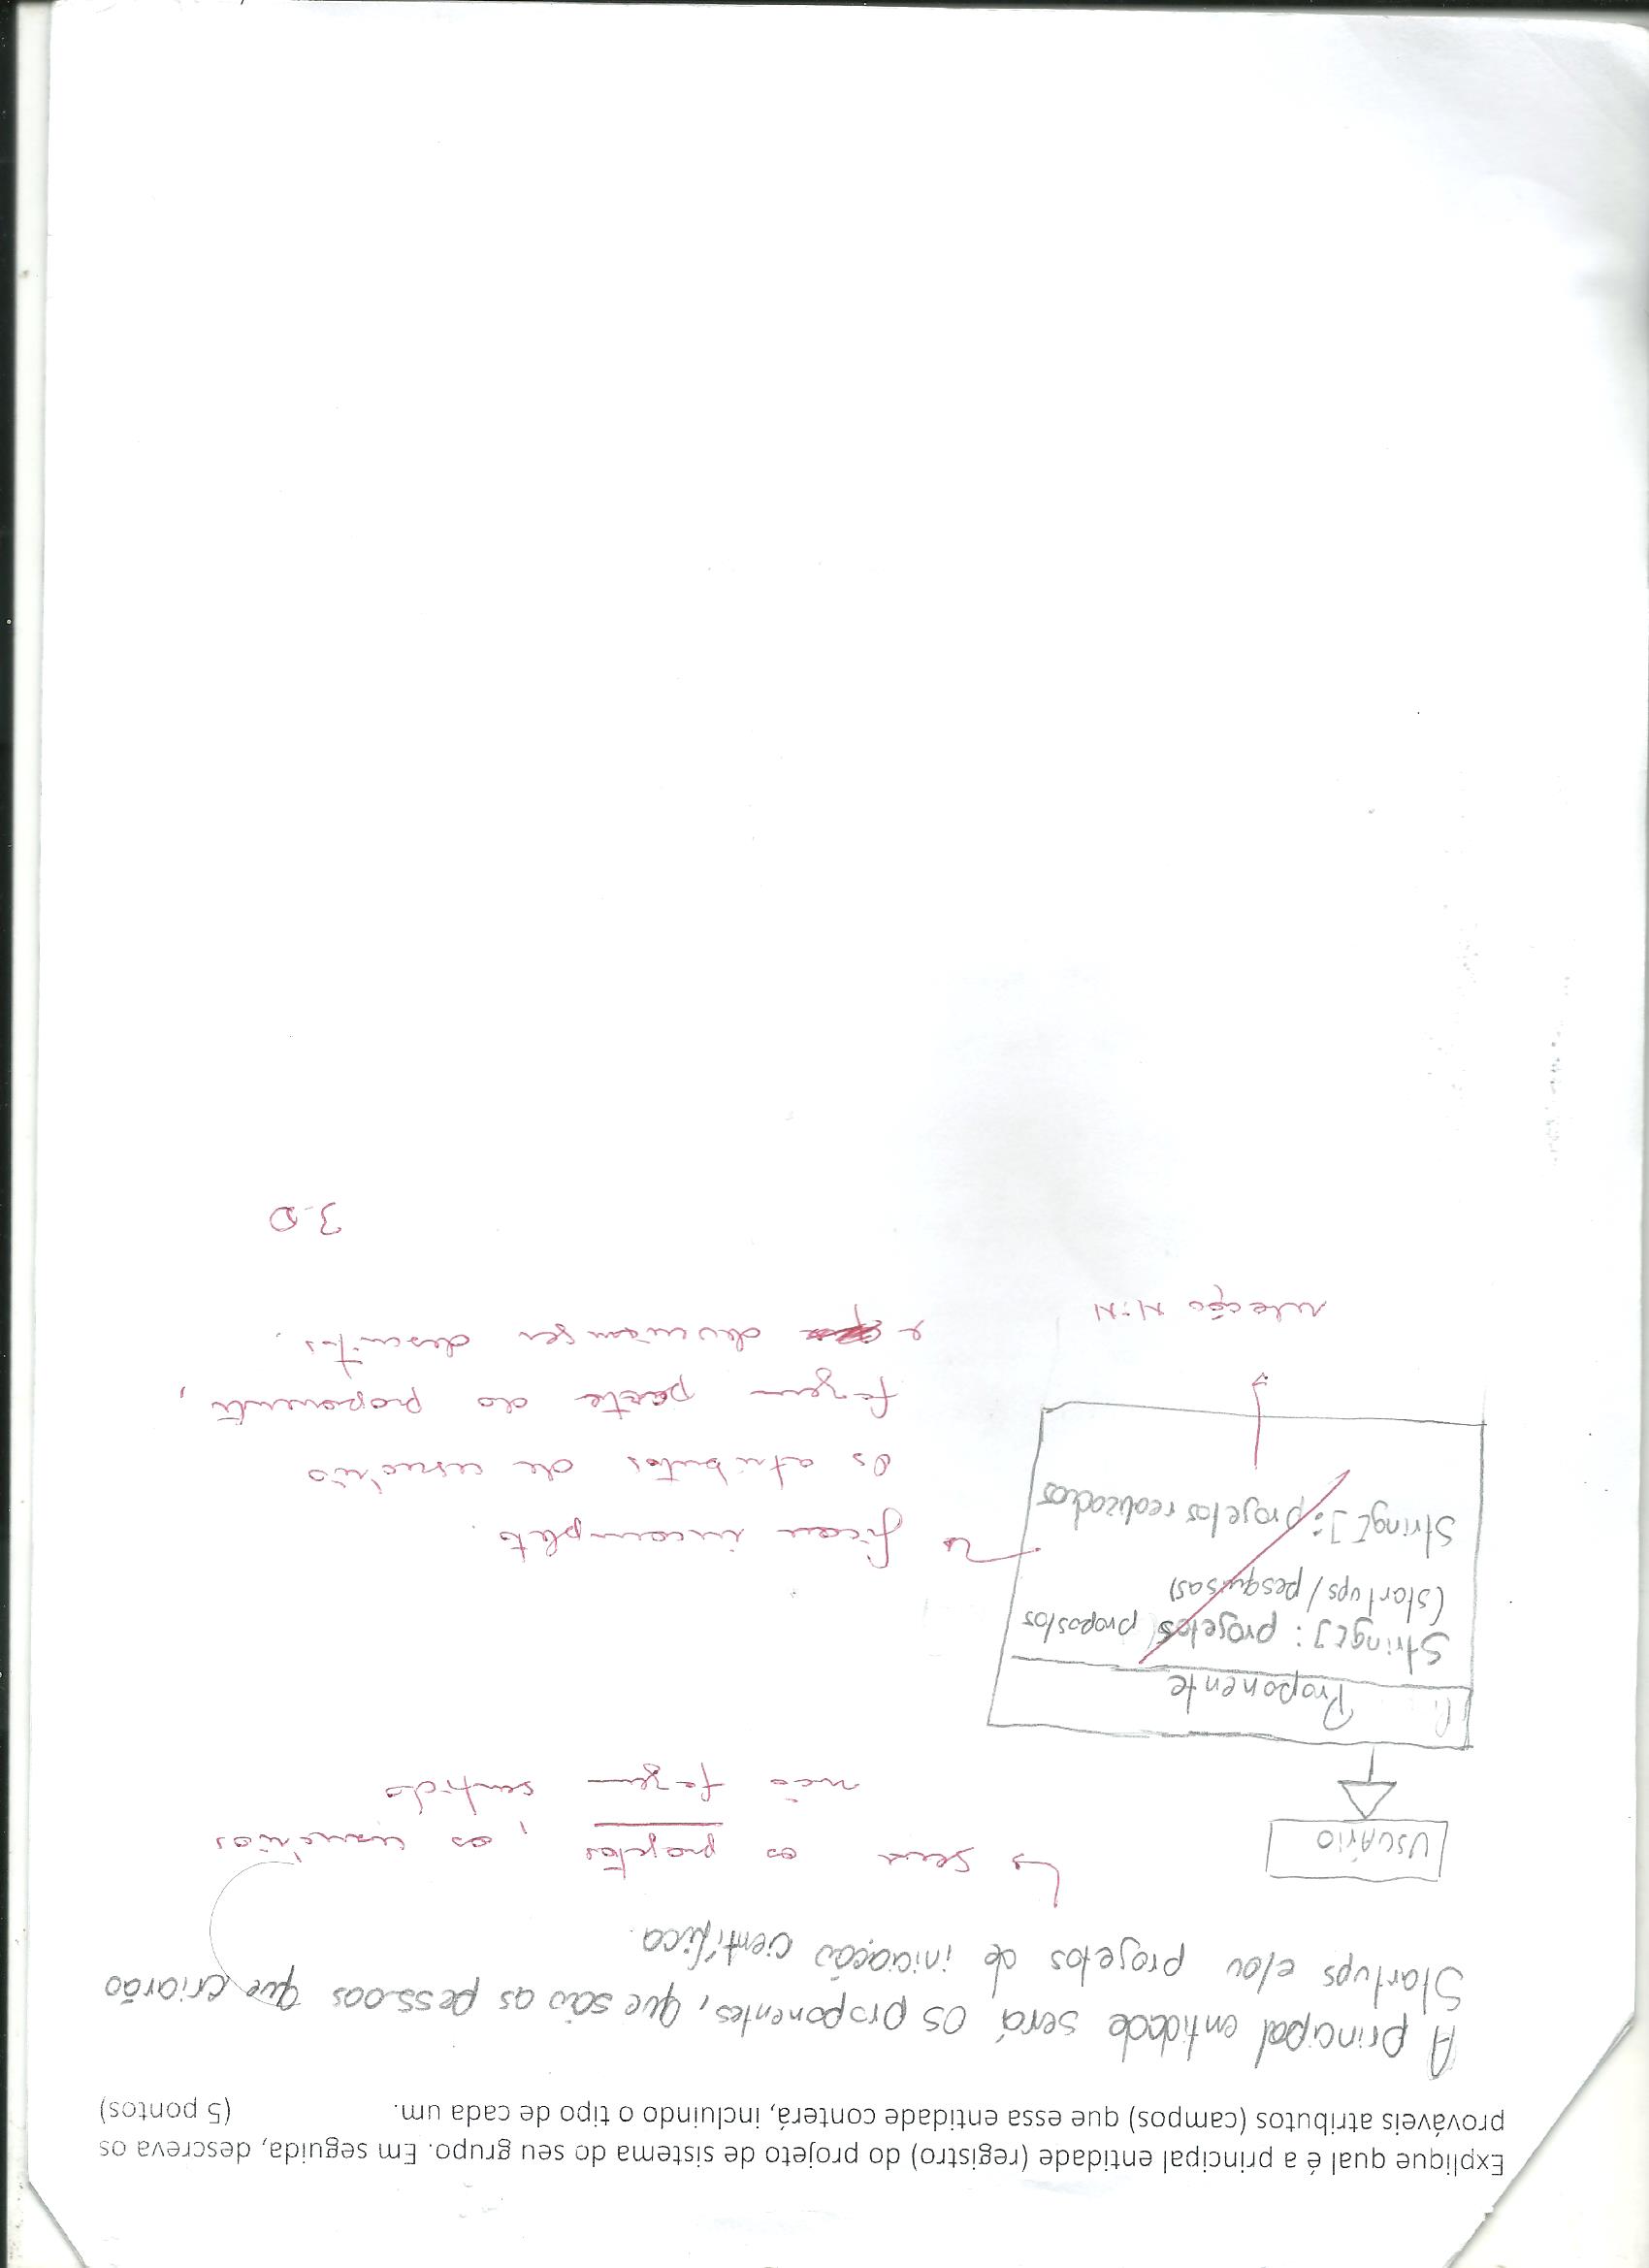 Explique qual é a principal entidade (registro) do projeto de sistema do seu grupo. Em seguida, descreva os
prováveis atributos (campos) que essa entidade conterá, incluindo o tipo de cada um. (5 pontos)
A principal entidade será os proponentes, que são as pessoas que criarão
Startups e/ou projetos de iniciação científica.
↳ sem os projetos, os usuários
não fazem sentido
USUÁRIO
Proponente
String[]: projetos propostos
(startups/pesquisas)
String[]: projetos realizados
ficou incompleto.
Os atributos de usuário
fazem parte do proponente,
e deveriam ser descritos.
relação N:N
3.0